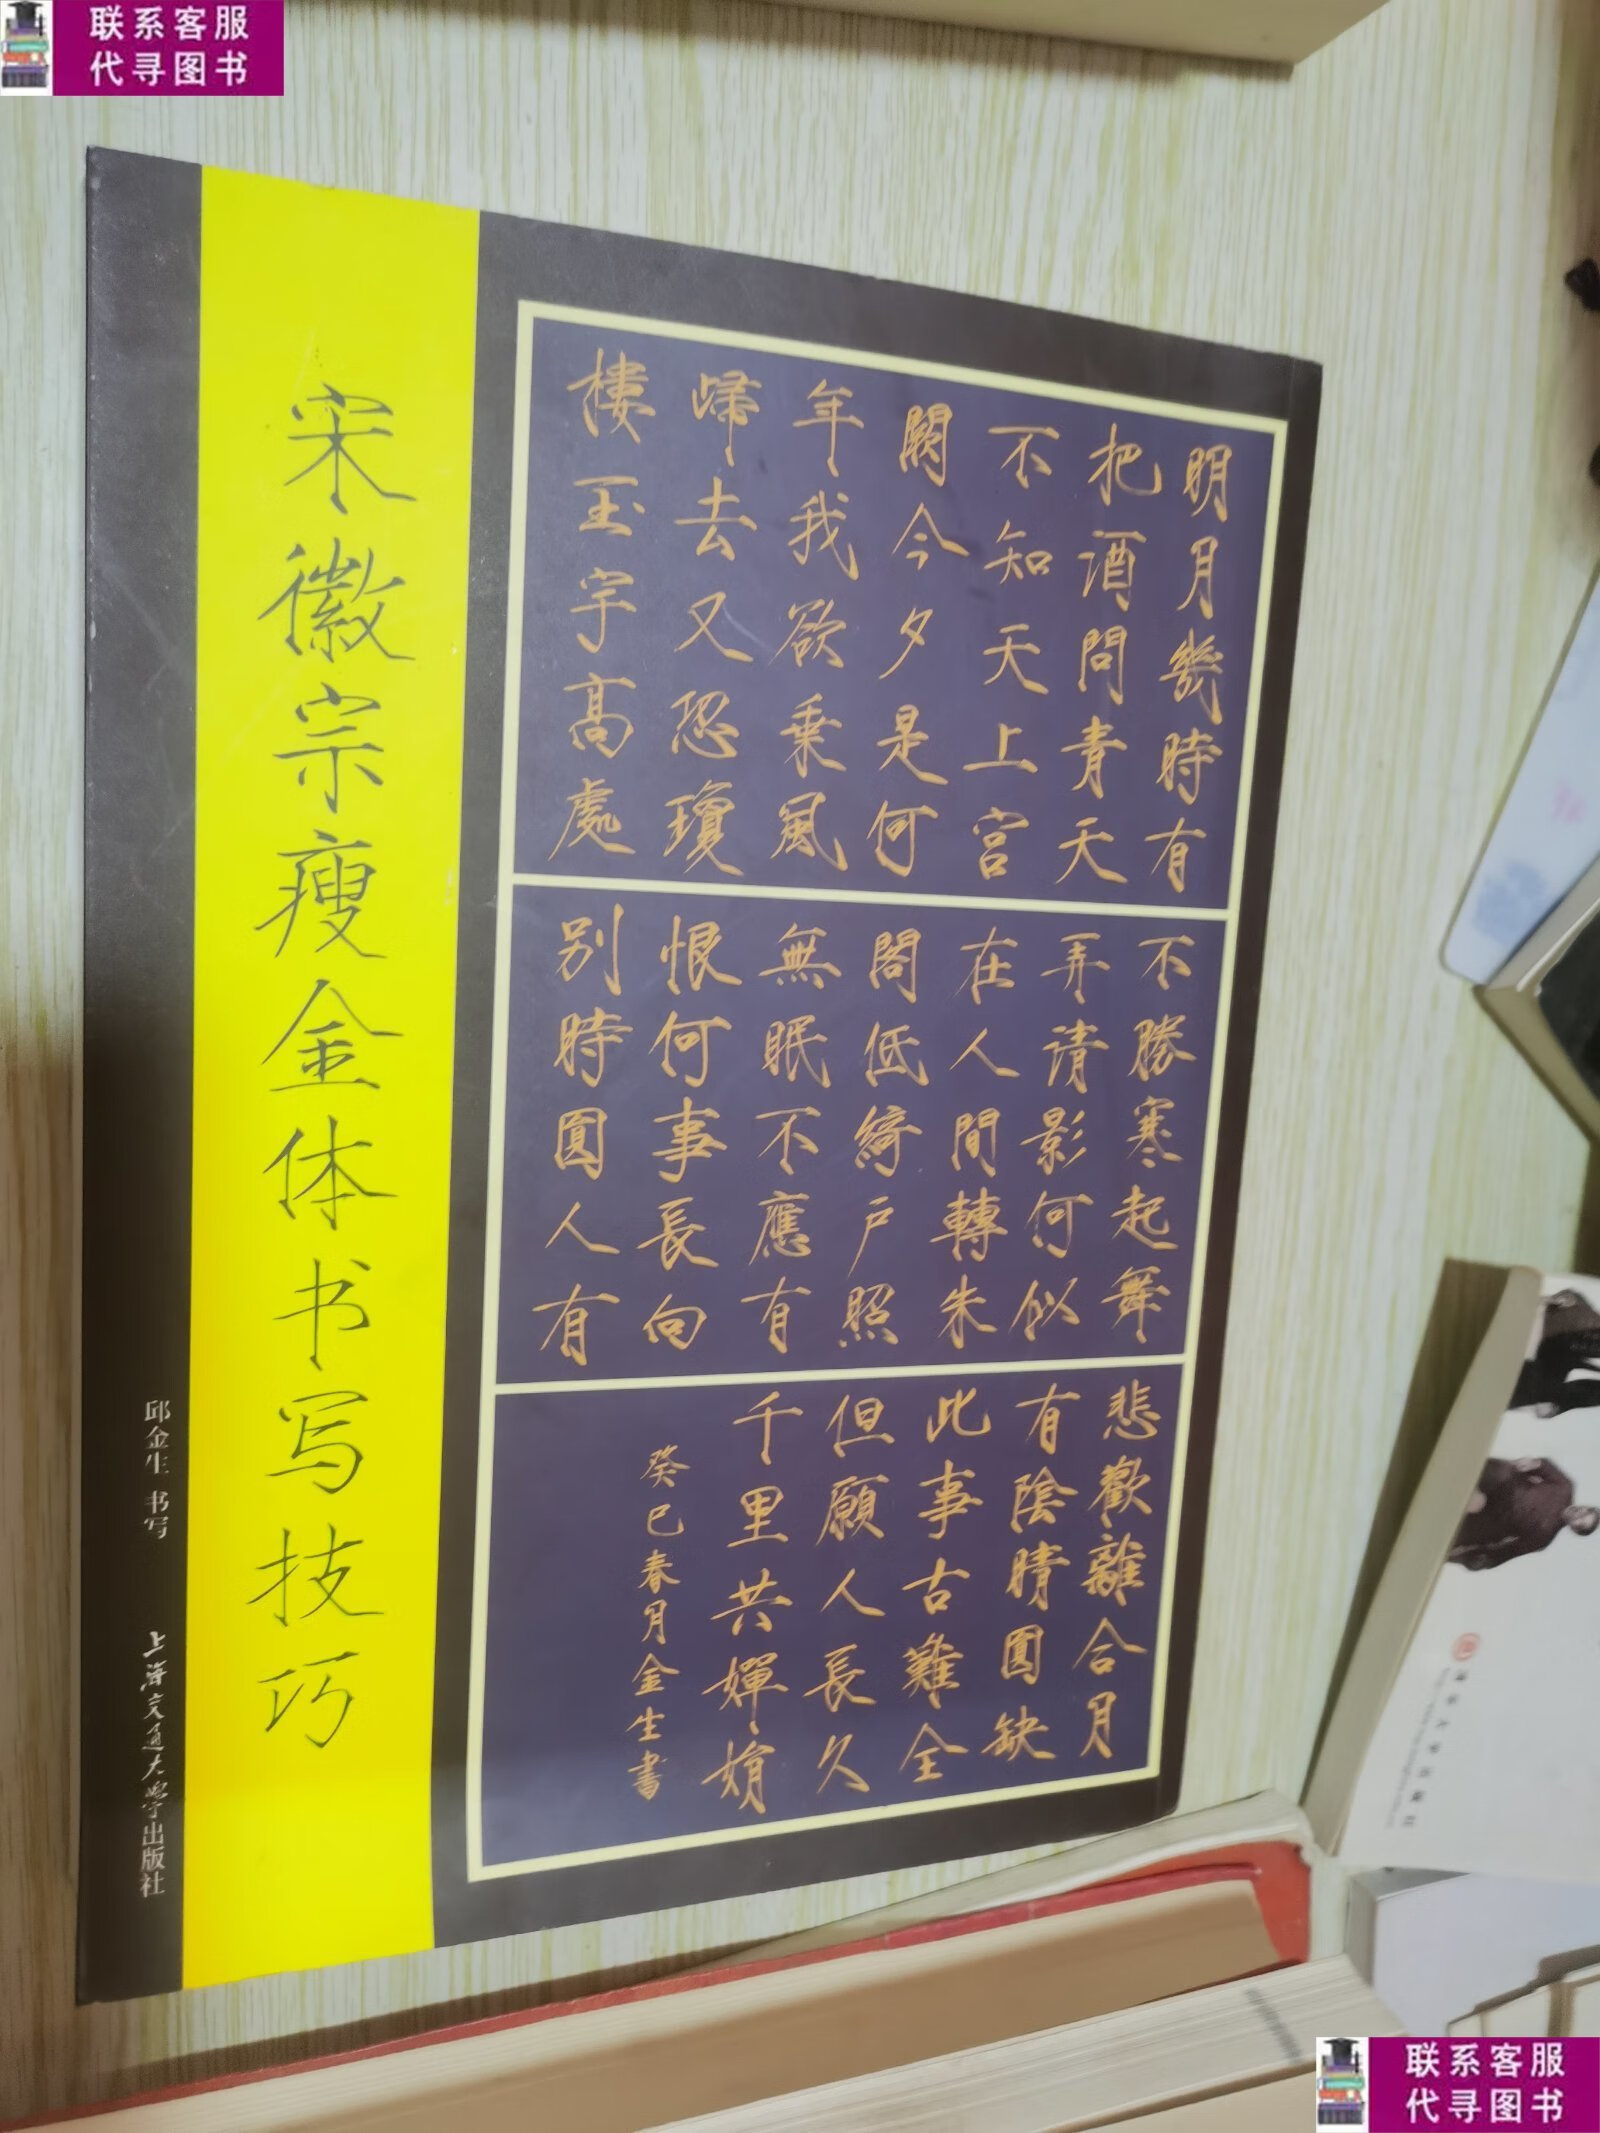 联系客服
代寻图书
宋徽宗瘦金体书写技巧
邱金生 书写
上海交通大学出版社
明月幾時有
把酒問青天
不知天上宫
闕今夕是何
年我欲乗風
歸去又恐瓊
樓玉宇高處
不勝寒起舞
弄清影何似
在人間轉朱
閣低綺户照
無眠不應有
恨何事長向
别時圓人有
悲歡離合月
有陰晴圓缺
此事古難全
但願人長久
千里共嬋娟
癸巳春月金生書
联系客服
代寻图书